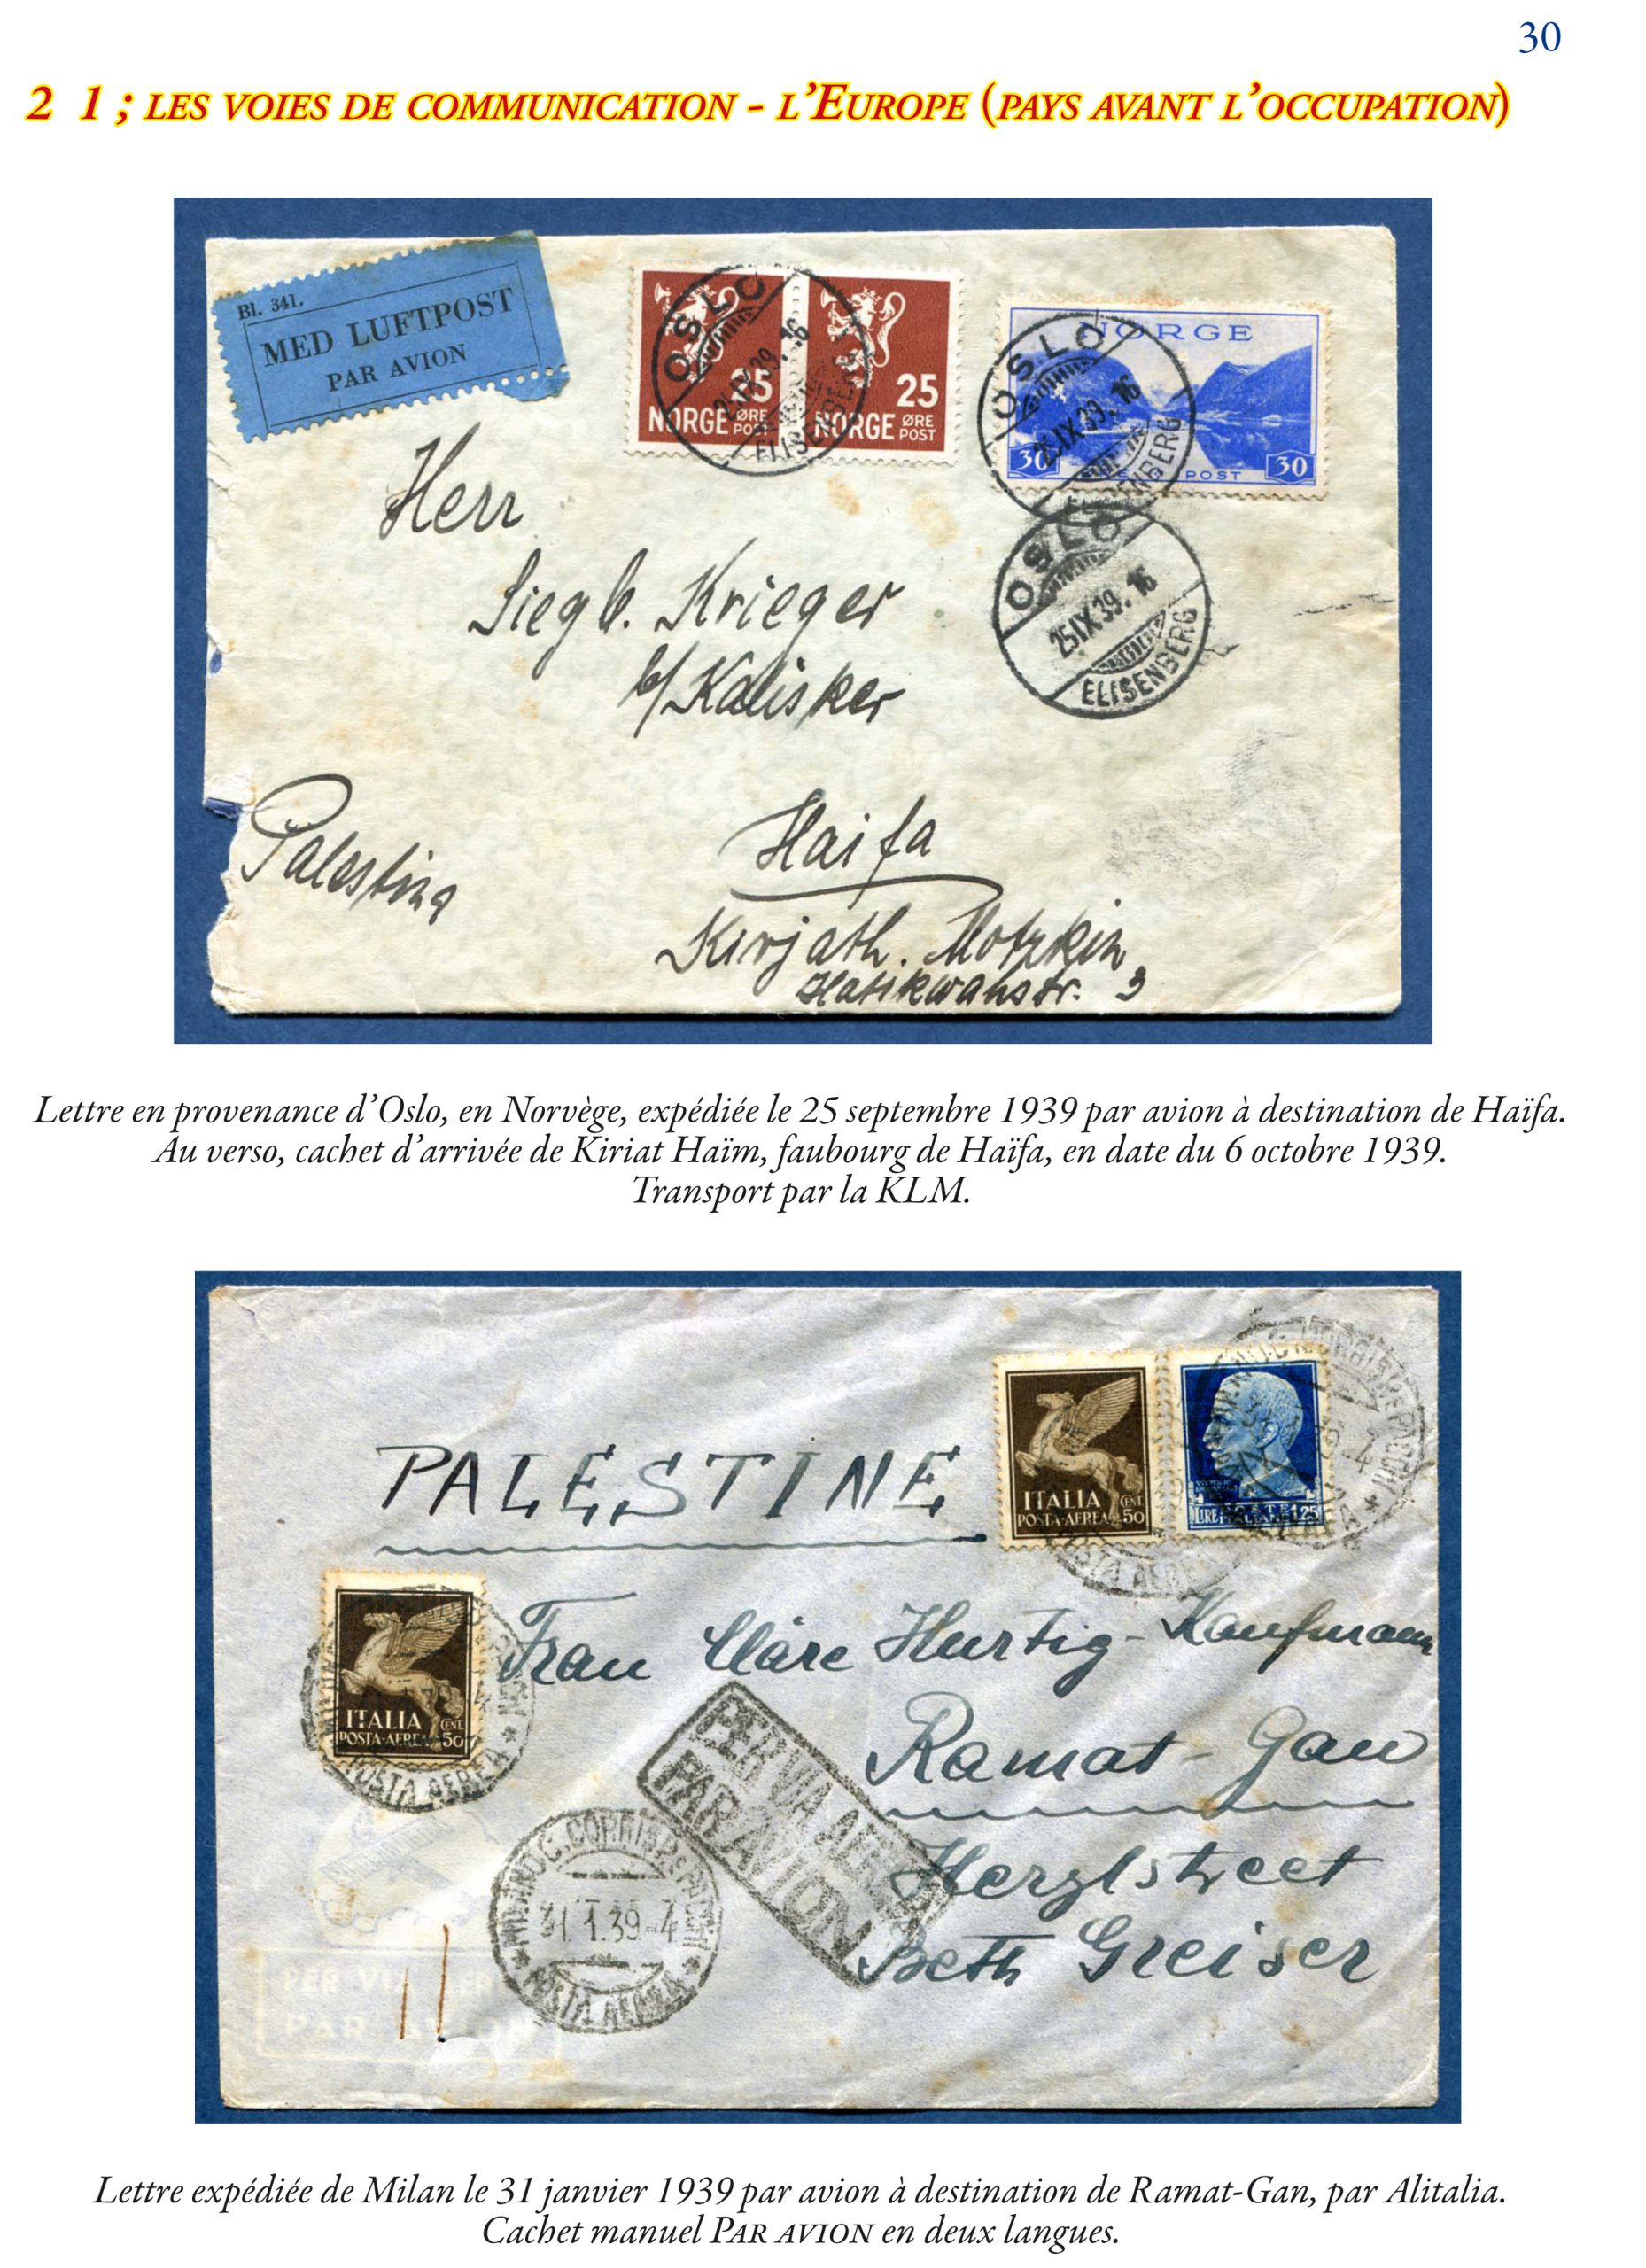 30
2 1 ; LES VOIES DE COMMUNICATION - L'EUROPE (PAYS AVANT L'OCCUPATION)
Bl. 341.
MED LUFTPOST
PAR AVION
OSLO
25 IX 39. 16
ELISENBERG
25
NORGE ØRE POST
25
NORGE ØRE POST
NORGE
OSLO
25 IX 39. 16
ELISENBERG
30
POST
30
OSLO
25 IX 39. 16
ELISENBERG
Herr
Siegb. Krieger
b/ Kalisker
Palestina
Haifa
Kirjath. Motzkin
Hatikwahstr. 3
Lettre en provenance d'Oslo, en Norvège, expédiée le 25 septembre 1939 par avion à destination de Haïfa.
Au verso, cachet d'arrivée de Kiriat Haïm, faubourg de Haïfa, en date du 6 octobre 1939.
Transport par la KLM.
PALESTINE
ITALIA
POSTA-AEREA CENT. 50
LIRE 1,25
POSTA AEREA
ITALIA
POSTA-AEREA CENT. 50
POSTA AEREA
Frau Cläre Hurtig-Kaufmann
Ramat-Gan
Herzlstreet
Beth Greiser
PER VIA AEREA
PAR AVION
CORRISP
31.1.39-4
POSTA AEREA
PER VIA AEREA
PAR AVION
Lettre expédiée de Milan le 31 janvier 1939 par avion à destination de Ramat-Gan, par Alitalia.
Cachet manuel PAR AVION en deux langues.